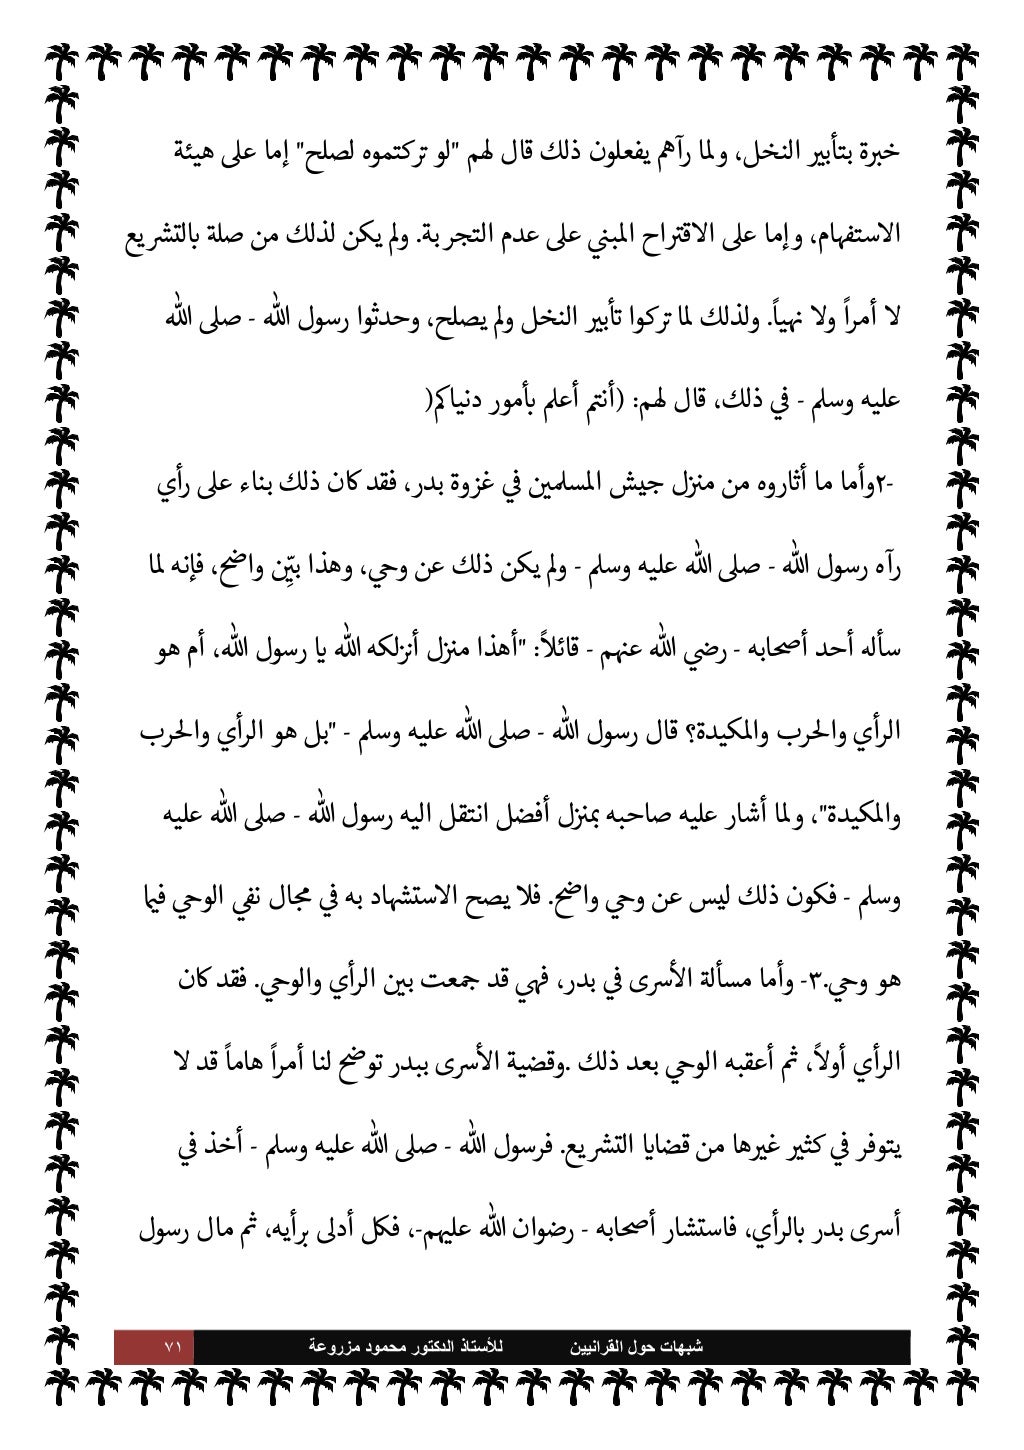 خبرة بتأبير النخل، ولما رآهم يفعلون ذلك قال لهم "لو تركتموه لصلح" إما على هيئة
الاستفهام، وإما على الاقتراح المبني على عدم التجربة. ولم يكن لذلك من صلة بالتشريع
لا أمراً ولا نهياً. ولذلك لما تركوا تأبير النخل ولم يصلح، وحدثوا رسول الله - صلى الله
عليه وسلم - في ذلك، قال لهم: (أنتم أعلم بأمور دنياكم(
-٢وأما ما أثاروه من منزل جيش المسلمين في غزوة بدر، فقد كان ذلك بناء على رأي
رآه رسول الله - صلى الله عليه وسلم - ولم يكن ذلك عن وحي، وهذا بيِّن واضح، فإنه لما
سأله أحد أصحابه - رضي الله عنهم - قائلاً: "أهذا منزل أنزلكه الله يا رسول الله، أم هو
الرأي والحرب والمكيدة؟ قال رسول الله - صلى الله عليه وسلم - "بل هو الرأي والحرب
والمكيدة"، ولما أشار عليه صاحبه بمنزل أفضل انتقل اليه رسول الله - صلى الله عليه
وسلم - فكون ذلك ليس عن وحي واضح. فلا يصح الاستشهاد به في مجال نفي الوحي فيما
هو وحي.٣- وأما مسألة الأسرى في بدر، فهي قد جمعت بين الرأي والوحي. فقد كان
الرأي أولاً، ثم أعقبه الوحي بعد ذلك .وقضية الأسرى ببدر توضح لنا أمراً هاماً قد لا
يتوفر في كثير غيرها من قضايا التشريع. فرسول الله - صلى الله عليه وسلم - أخذ في
أسرى بدر بالرأي، فاستشار أصحابه - رضوان الله عليهم-، فكل أدلى برأيه، ثم مال رسول
شبهات حول القرانيين للأستاذ الدكتور محمود مزروعة ٧١